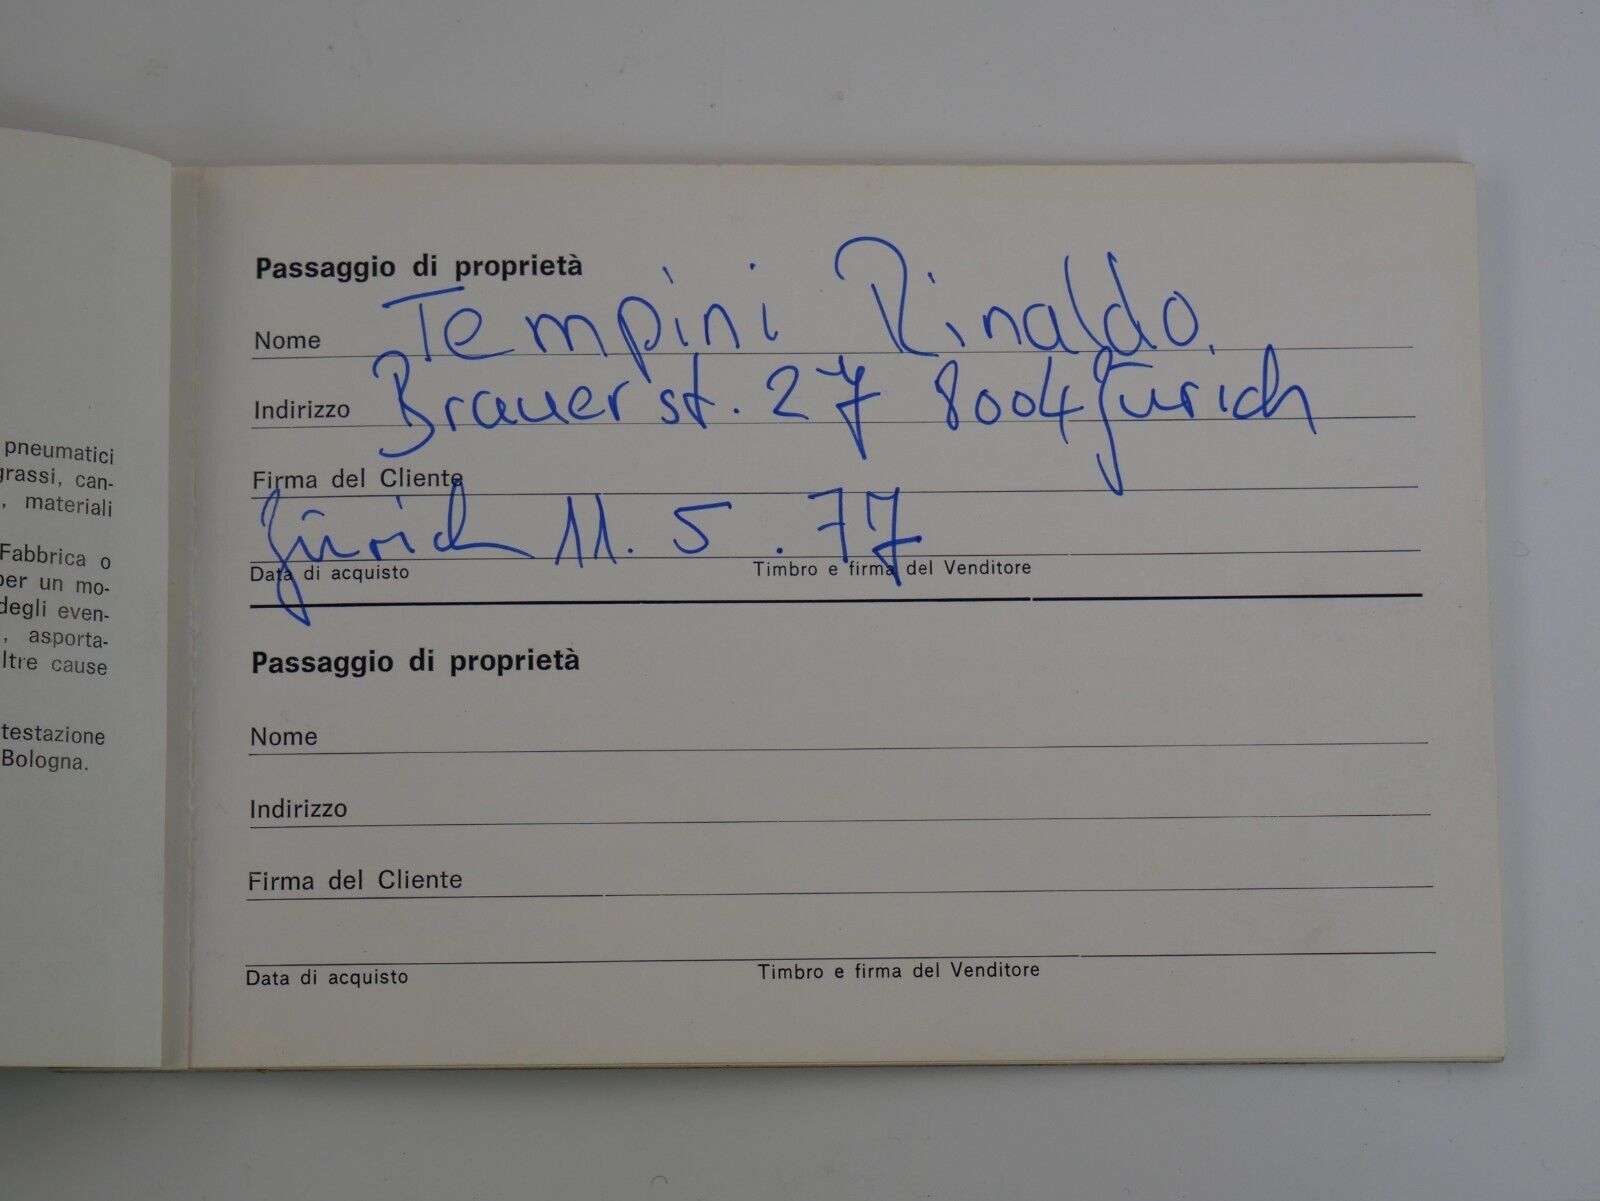 pneumatici
grassi, can-
, materiali
Fabbrica o
per un mo-
degli even-
, asporta-
ltre cause
testazione
Bologna.
Passaggio di proprietà
Nome Tempini Rinaldo.
Indirizzo Brauerst. 27 8004 Zürich
Firma del Cliente
Zürich 11. 5. 77
Data di acquisto Timbro e firma del Venditore
Passaggio di proprietà
Nome
Indirizzo
Firma del Cliente
Data di acquisto Timbro e firma del Venditore